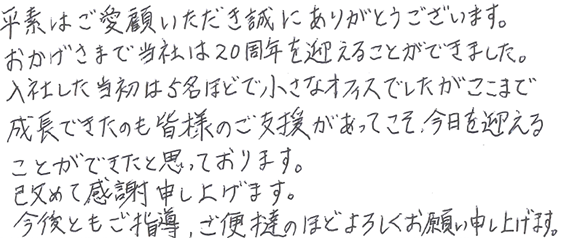 平素はご愛顧いただき誠にありがとうございます。
おかげさまで当社は20周年を迎えることができました。
入社した当初は5名ほどで小さなオフィスでしたがここまで
成長できたのも皆様のご支援があってこそ、今日を迎える
ことができたと思っております。
改めて感謝申し上げます。
今後ともご指導、ご便撻のほどよろしくお願い申し上げます。